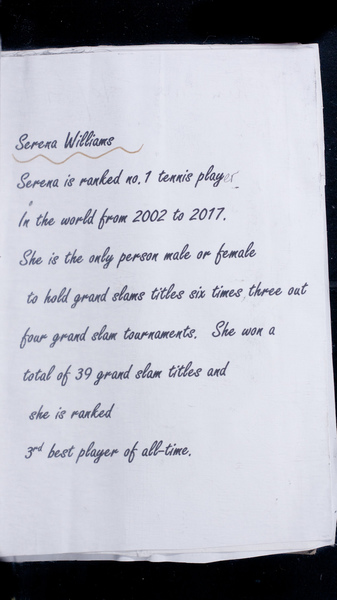 Serena Williams
Serena is ranked no. 1 tennis player
In the world from 2002 to 2017.
She is the only person male or female
to hold grand slams titles six times three out
four grand slam tournaments. She won a
total of 39 grand slam titles and
she is ranked
3rd best player of all-time.